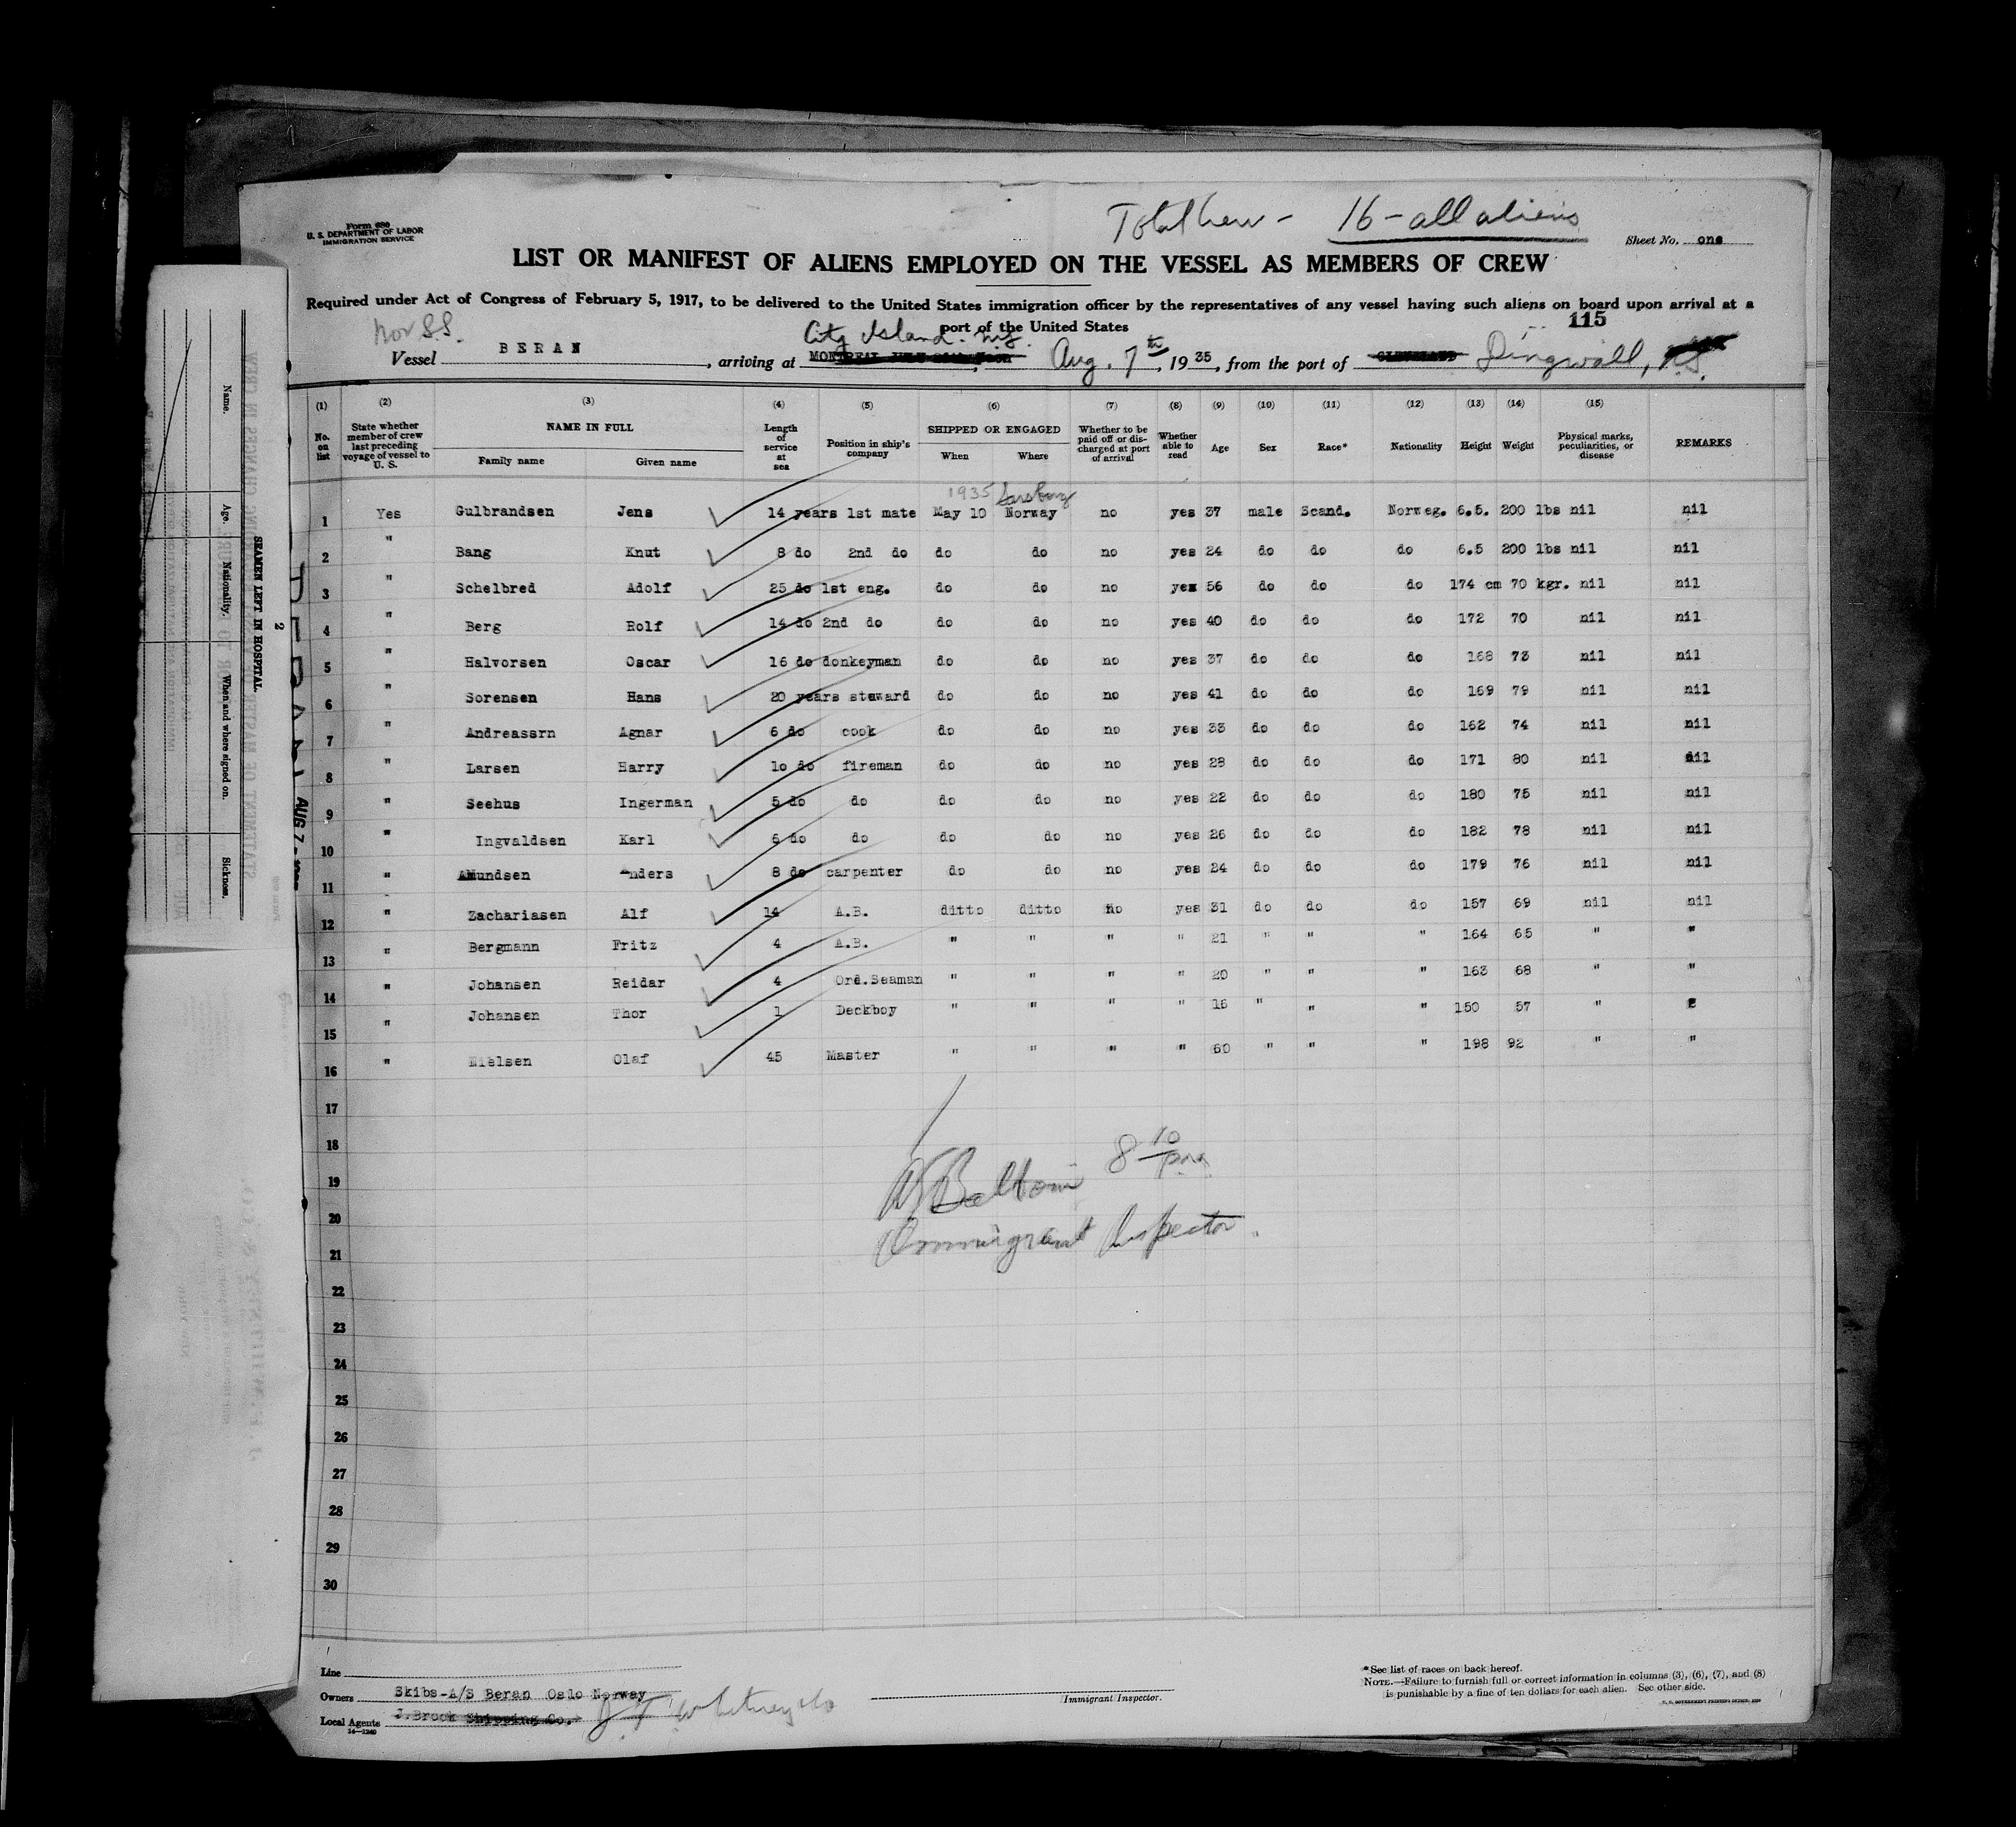 Form 680
U. S. DEPARTMENT OF LABOR
IMMIGRATION SERVICE
Total Crew - 16 - all aliens
Sheet No. one
LIST OR MANIFEST OF ALIENS EMPLOYED ON THE VESSEL AS MEMBERS OF CREW
Required under Act of Congress of February 5, 1917, to be delivered to the United States immigration officer by the representatives of any vessel having such aliens on board upon arrival at a
port of the United States
115
Nor S.S.
City Island. N.Y.
Vessel BERAN, arriving at MONTREAL Aug. 7th, 1935, from the port of CLEVELAND Dingwall, N.S.
(1) (2) (3) (4) (5) (6) (7) (8) (9) (10) (11) (12) (13) (14) (15)
No. on list State whether member of crew last preceding voyage of vessel to U. S. NAME IN FULL Family name Given name Length of service at sea Position in ship's company SHIPPED OR ENGAGED When Where Whether to be paid off or discharged at port of arrival Whether able to read Age Sex Race* Nationality Height Weight Physical marks, peculiarities, or disease REMARKS
1935
1 Yes Gulbrandsen Jens 14 years 1st mate May 10 Norway no yes 37 male Scand. Norweg. 6.5. 200 lbs nil nil
2 " Bang Knut 8 do 2nd do do do no yes 24 do do do 6.5 200 lbs nil nil
3 " Schelbred Adolf 25 do 1st eng. do do no yes 56 do do do 174 cm 70 kgr. nil nil
4 " Berg Rolf 14 do 2nd do do do no yes 40 do do do 172 70 nil nil
5 " Halvorsen Oscar 16 do donkeyman do do no yes 37 do do do 168 73 nil nil
6 " Sorensen Hans 20 years steward do do no yes 41 do do do 169 79 nil nil
7 " Andreassrn Agnar 6 do cook do do no yes 33 do do do 162 74 nil nil
8 " Larsen Harry 1o do fireman do do no yes 28 do do do 171 80 nil nil
9 " Seehus Ingerman 5 do do do do no yes 22 do do do 180 75 nil nil
10 " Ingvaldsen Karl 6 do do do do no yes 26 do do do 182 78 nil nil
11 " Amundsen Anders 8 do carpenter do do no yes 24 do do do 179 76 nil nil
12 " Zachariasen Alf 14 A.B. ditto ditto no yes 31 do do do 157 69 nil nil
13 " Bergmann Fritz 4 A.B. " " " " 21 " " " 164 65 " "
14 " Johansen Reidar 4 Ord.Seaman " " " " 20 " " " 163 68 " "
15 " Johansen Thor 1 Deckboy " " " " 16 " " " 150 57 "
16 " Nielsen Olaf 45 Master " " " " 60 " " " 198 92 " "
17
18
19
20
21
22
23
24
25
26
27
28
29
30
8 10 pm
Immigrant Inspector.
Line
Owners Skibs-A/S Beran Oslo Norway
Local Agents J.Brock Shipping Co. J F Whitney & Co
14-1240
Immigrant Inspector.
*See list of races on back hereof.
NOTE.—Failure to furnish full or correct information in columns (3), (6), (7), and (8)
is punishable by a fine of ten dollars for each alien. See other side.
2
SEAMEN LEFT IN HOSPITAL
Name. Age. Nationality. When and where signed on. Sickness.
AUG 7